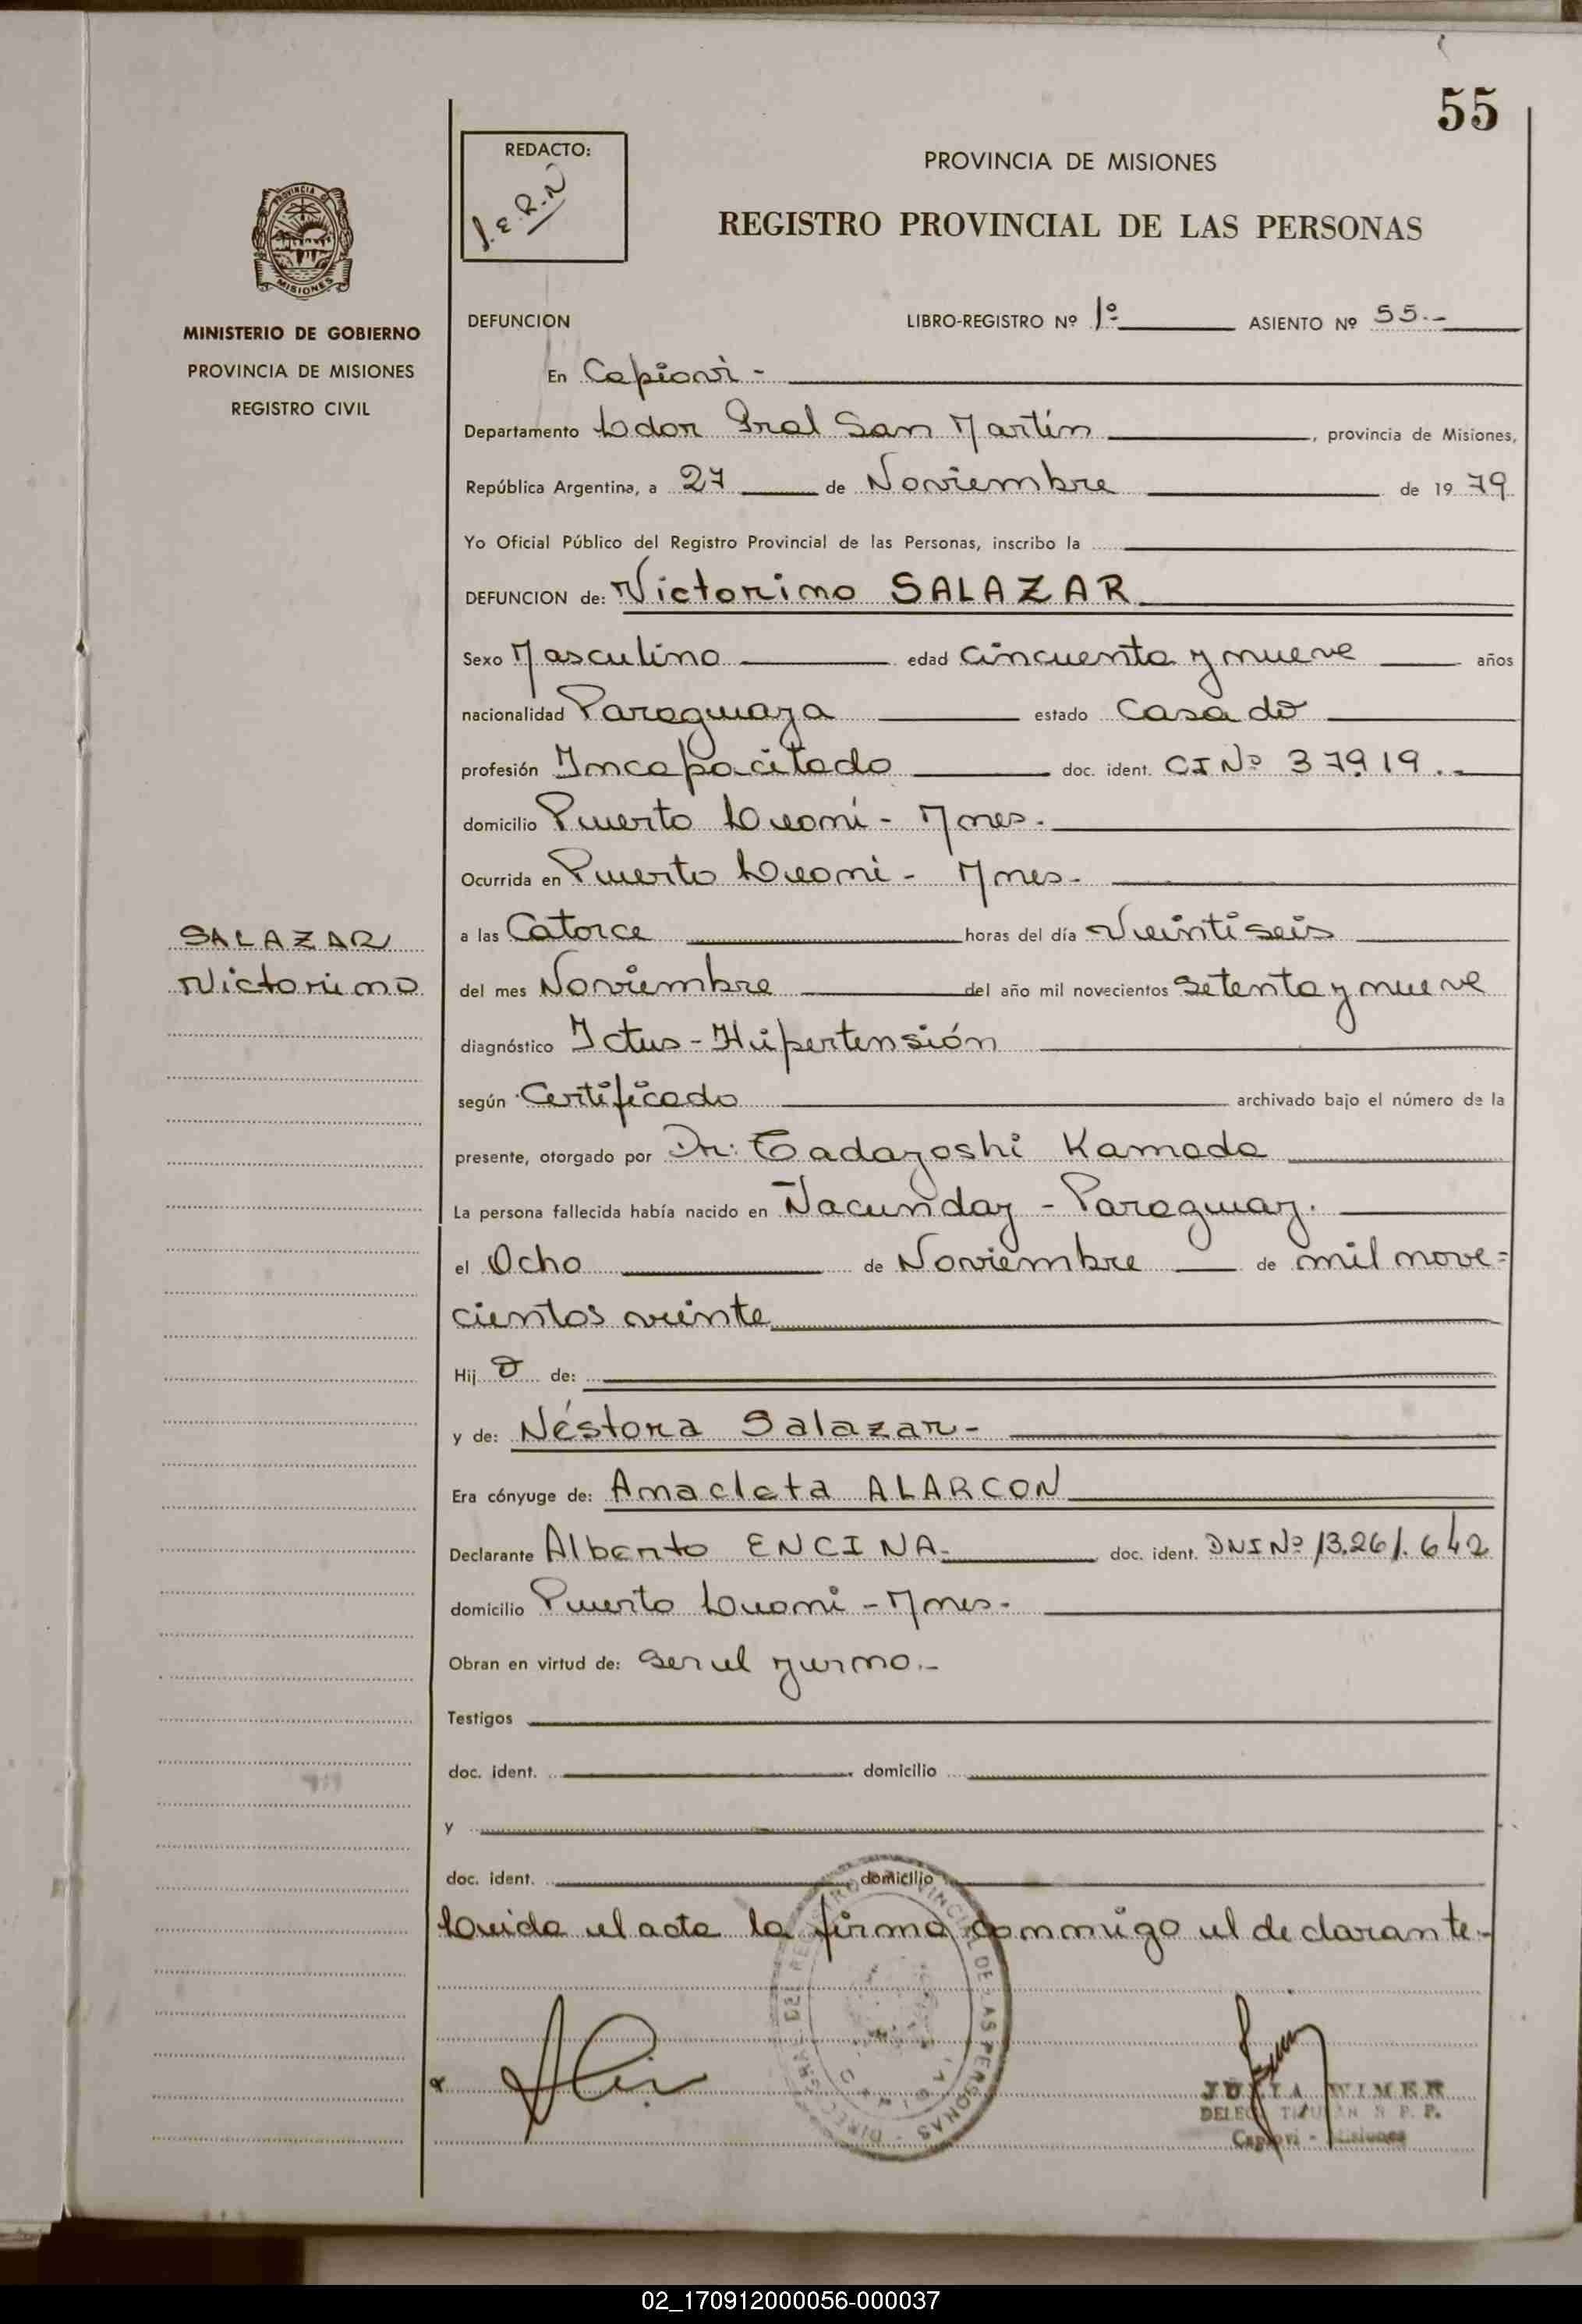 55
REDACTO:
J.E.R.N
PROVINCIA DE MISIONES
REGISTRO PROVINCIAL DE LAS PERSONAS
PROVINCIA DE
MISIONES
MINISTERIO DE GOBIERNO
PROVINCIA DE MISIONES
REGISTRO CIVIL
DEFUNCION LIBRO-REGISTRO Nº 1º ASIENTO Nº 55.-
En Capioví -
Departamento Ldor Gral San Martín, provincia de Misiones,
República Argentina, a 27 de Noviembre de 1979
Yo Oficial Público del Registro Provincial de las Personas, inscribo la
DEFUNCION de: Victorino SALAZAR
Sexo Masculino edad Cincuenta y nueve años
nacionalidad Paraguaya estado Casado
profesión Incapacitado doc. ident. CI Nº 37919.-
domicilio Puerto Leoni - Mnes.
Ocurrida en Puerto Leoni - Mnes-
SALAZAR
Victorino
a las Catorce horas del día Veintiseis
del mes Noviembre del año mil novecientos Setenta y nueve
diagnóstico Ictus - Hipertensión
según Certificado archivado bajo el número de la
presente, otorgado por Dr. Tadayoshi Kamada
La persona fallecida había nacido en Ñacunday - Paraguay.
el Ocho de Noviembre de mil nove=
cientos veinte
Hijo de:
y de: Néstora Salazar-
Era cónyuge de: Anacleta ALARCON
Declarante Alberto ENCINA- doc. ident. DNI Nº 13.261.642
domicilio Puerto Leoni - Mnes-
Obran en virtud de: Ser el yerno.-
Testigos
doc. ident. domicilio
y
doc. ident. domicilio
Leida el acta la firma conmigo el declarante.-
JULIA WIMER
DELEG. TITULAR R. P. P.
Capioví - Misiones
02_170912000056-000037